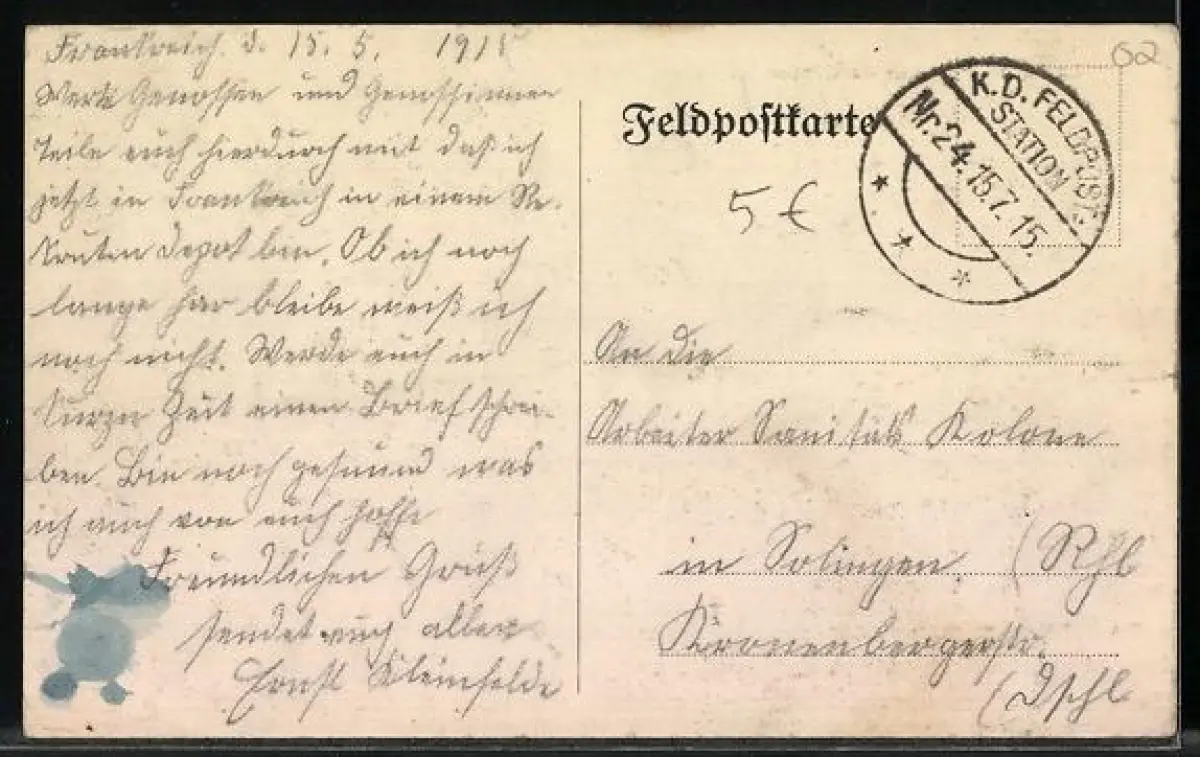 Frankreich d. 15. 5. 1915
Werte Genossen und Genossinnen
Teile euch hierdurch mit das ich
jetzt in Frankreich in einem Re-
kruten Depot bin. Ob ich noch
lange hier bleibe weiß ich
noch nicht. Werde euch in
kurzer Zeit einen Brief schrei-
ben. Bin noch gesund was
ich auch von euch hoffe
Freundlichen Gruß
sendet euch allen
Ernst Kleinfelde
Feldpostkarte
K.D. FELDPOST-
STATION
Nr. 24. 15.7.15.
02
5 €
An die
Arbeiter Sanitäts Kolone
in Solingen. (Rhl
Kronenbergerstr.
(Dschl